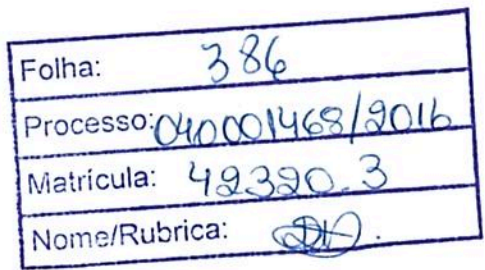 Folha: 386
Processo: 040001468/2016
Matrícula: 42320.3
Nome/Rubrica: